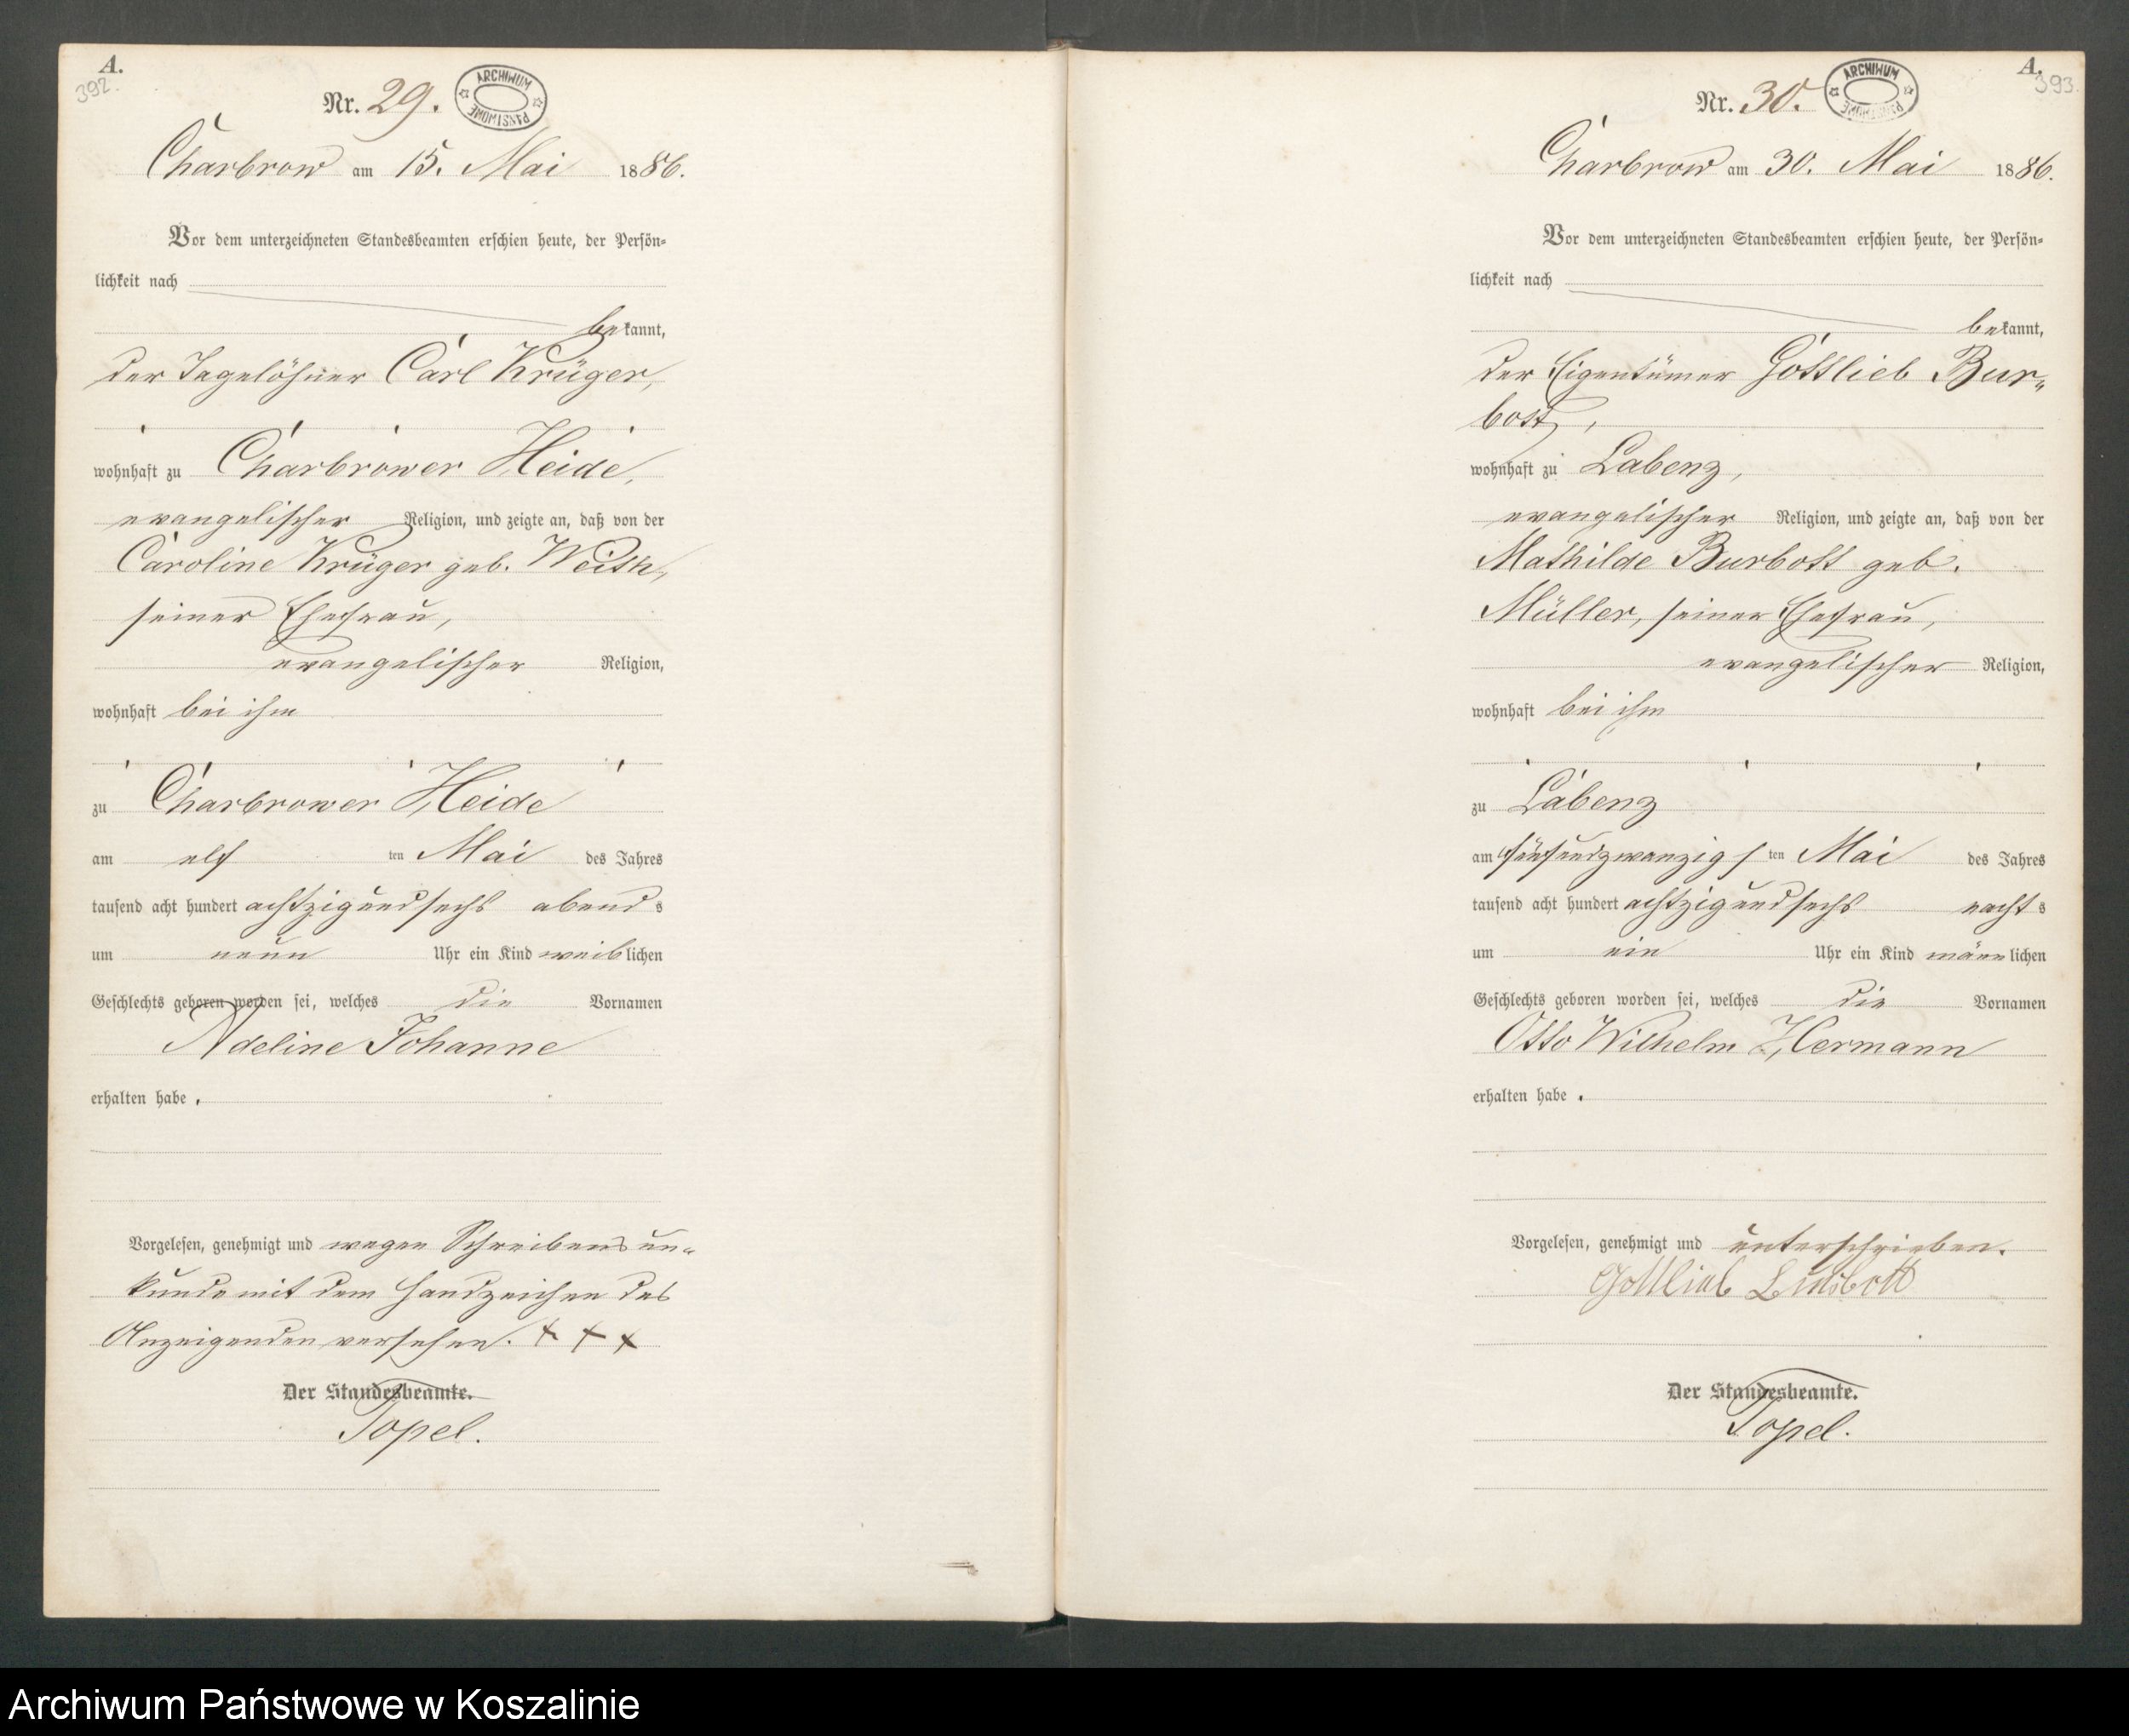 A.
392.
Nr. 29.
ARCHIWUM PAŃSTWOWE
Charbrow am 15. Mai 1886.
Vor dem unterzeichneten Standesbeamten erschien heute, der Persön-
lichkeit nach
bekannt,
der Tagelöhner Carl Krüger,
wohnhaft zu Charbrower Heide,
evangelischer Religion, und zeigte an, daß von der
Caroline Krüger geb. Weith,
seiner Ehefrau,
evangelischer Religion,
wohnhaft bei ihm
zu Charbrower Heide
am elf ten Mai des Jahres
tausend acht hundert achtzigundsechs abends
um neun Uhr ein Kind weiblichen
Geschlechts geboren worden sei, welches die Vornamen
Adeline Johanne
erhalten habe.
Vorgelesen, genehmigt und wegen Schreibensun-
kunde mit dem Handzeichen des
Anzeigenden versehen. + + +
Der Standesbeamte.
Topel.
A.
393.
Nr. 30.
ARCHIWUM PAŃSTWOWE
Charbrow am 30. Mai 1886.
Vor dem unterzeichneten Standesbeamten erschien heute, der Persön-
lichkeit nach
bekannt,
der Eigentümer Gottlieb Bur-
bott,
wohnhaft zu Labenz,
evangelischer Religion, und zeigte an, daß von der
Mathilde Burbott geb.
Müller, seiner Ehefrau,
evangelischer Religion,
wohnhaft bei ihm
zu Labenz
am fünfundzwanzigsten Mai des Jahres
tausend acht hundert achtzigundsechs nachts
um ein Uhr ein Kind männlichen
Geschlechts geboren worden sei, welches die Vornamen
Otto Wilhelm Hermann
erhalten habe.
Vorgelesen, genehmigt und unterschrieben.
Gottlieb Burbott
Der Standesbeamte.
Topel.
Archiwum Państwowe w Koszalinie